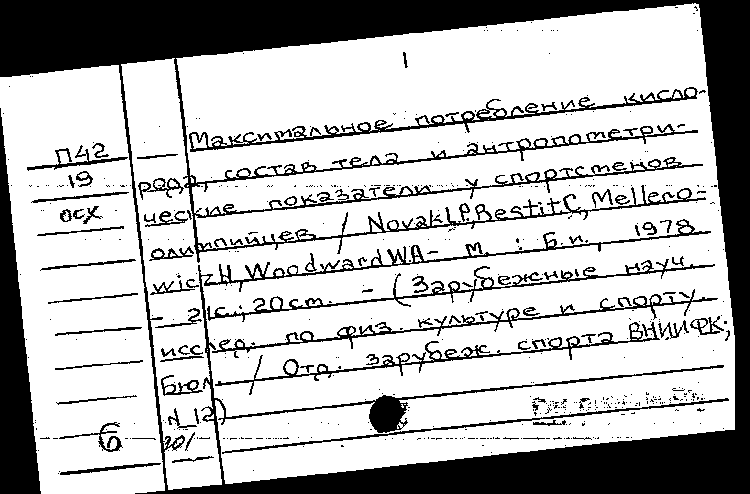 1
П42
19
осх
Максимальное потребление кисло-
рода, состав тела и антропометри-
ческие показатели у спортсменов
олимпийцев / Novak L.P., Bestit C, Mellero-
wicz H, Woodward WA - м. : Б.и., 1978
- 21с.; 20 cm. - (Зарубежные науч.
исслед. по физ. культуре и спорту.
Бюл. / Отд. зарубеж. спорта ВНИИФК;
N 12)
6
201